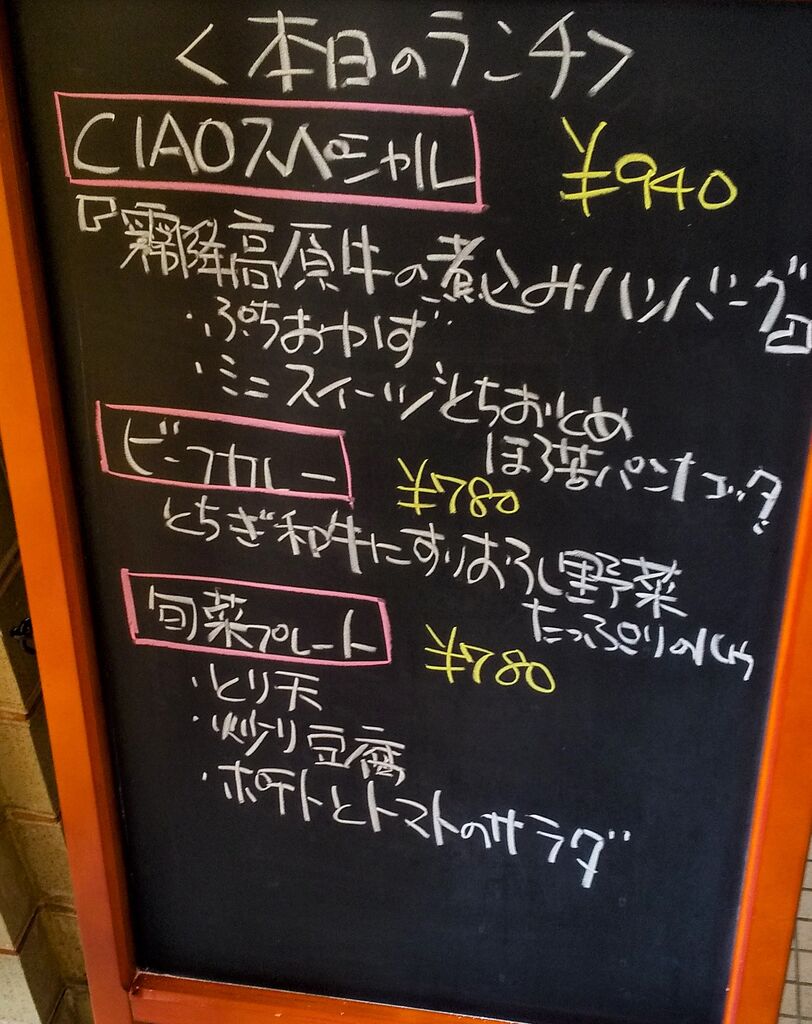 ＜本日のランチ＞
CIAOスペシャル ¥940
『霧降高原牛の煮込みハンバーグ』
・ぷちおやさい
・ミニスイーツ とちおとめ
ほろ苦パンナコッタ
ビーフカレー ¥780
とちぎ和牛にすりおろし野菜
たっぷりの
旬菜プレート ¥780
・とり天
・炒り豆腐
・ポテトとトマトのサラダ